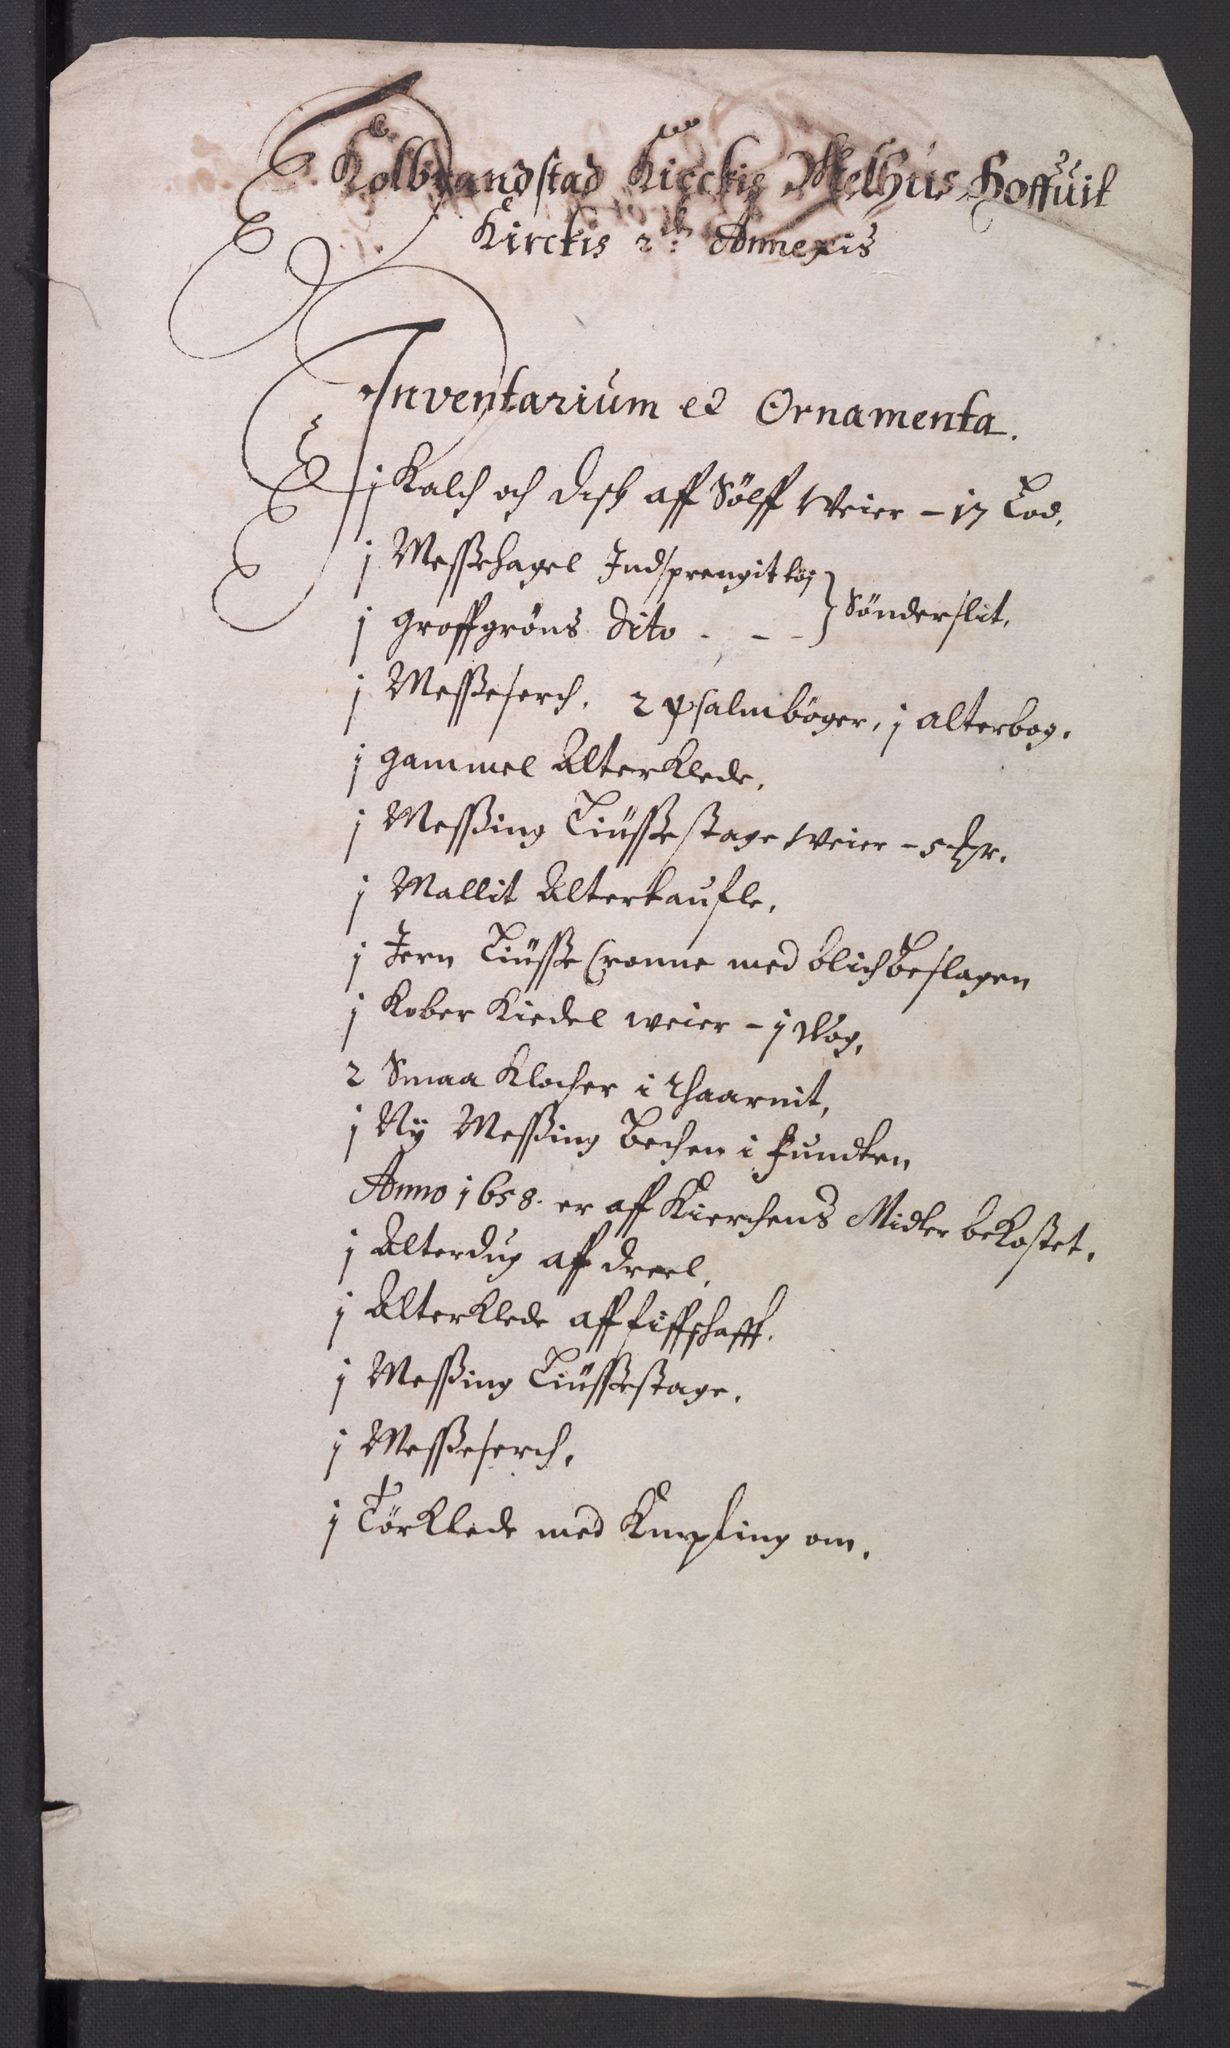 Kolbrandstad Kirckis Melhus Hoffuit
Kirckis 2de Annexis
Inventarium et Ornamenta.
j Kalch och disk aff Sølff weier – 17 Lod.
j Messehagel Indsprengit tøj } Sønderslit.
j groffgröns dito - - -
j Messeserch. 2 psalmbøger, j alterbog.
j gammel Alterklede.
j Messing Liüssestage weier – 5
j Mallit Altertaufle.
j Jern Liüsse Cronne med blich beslagen
j Kober Kiedel weier – j Wog.
2 Smaa Klocher i thaarnit.
j Ny Messing Bechen i Fundten
Anno 1658. er aff Kierchens Midler bekostet.
j Alterdug aff dreel.
j Alterklede aff fiffschafft.
j Messing Liüssestage.
j Messeserch.
j Törklede med Knipling om.